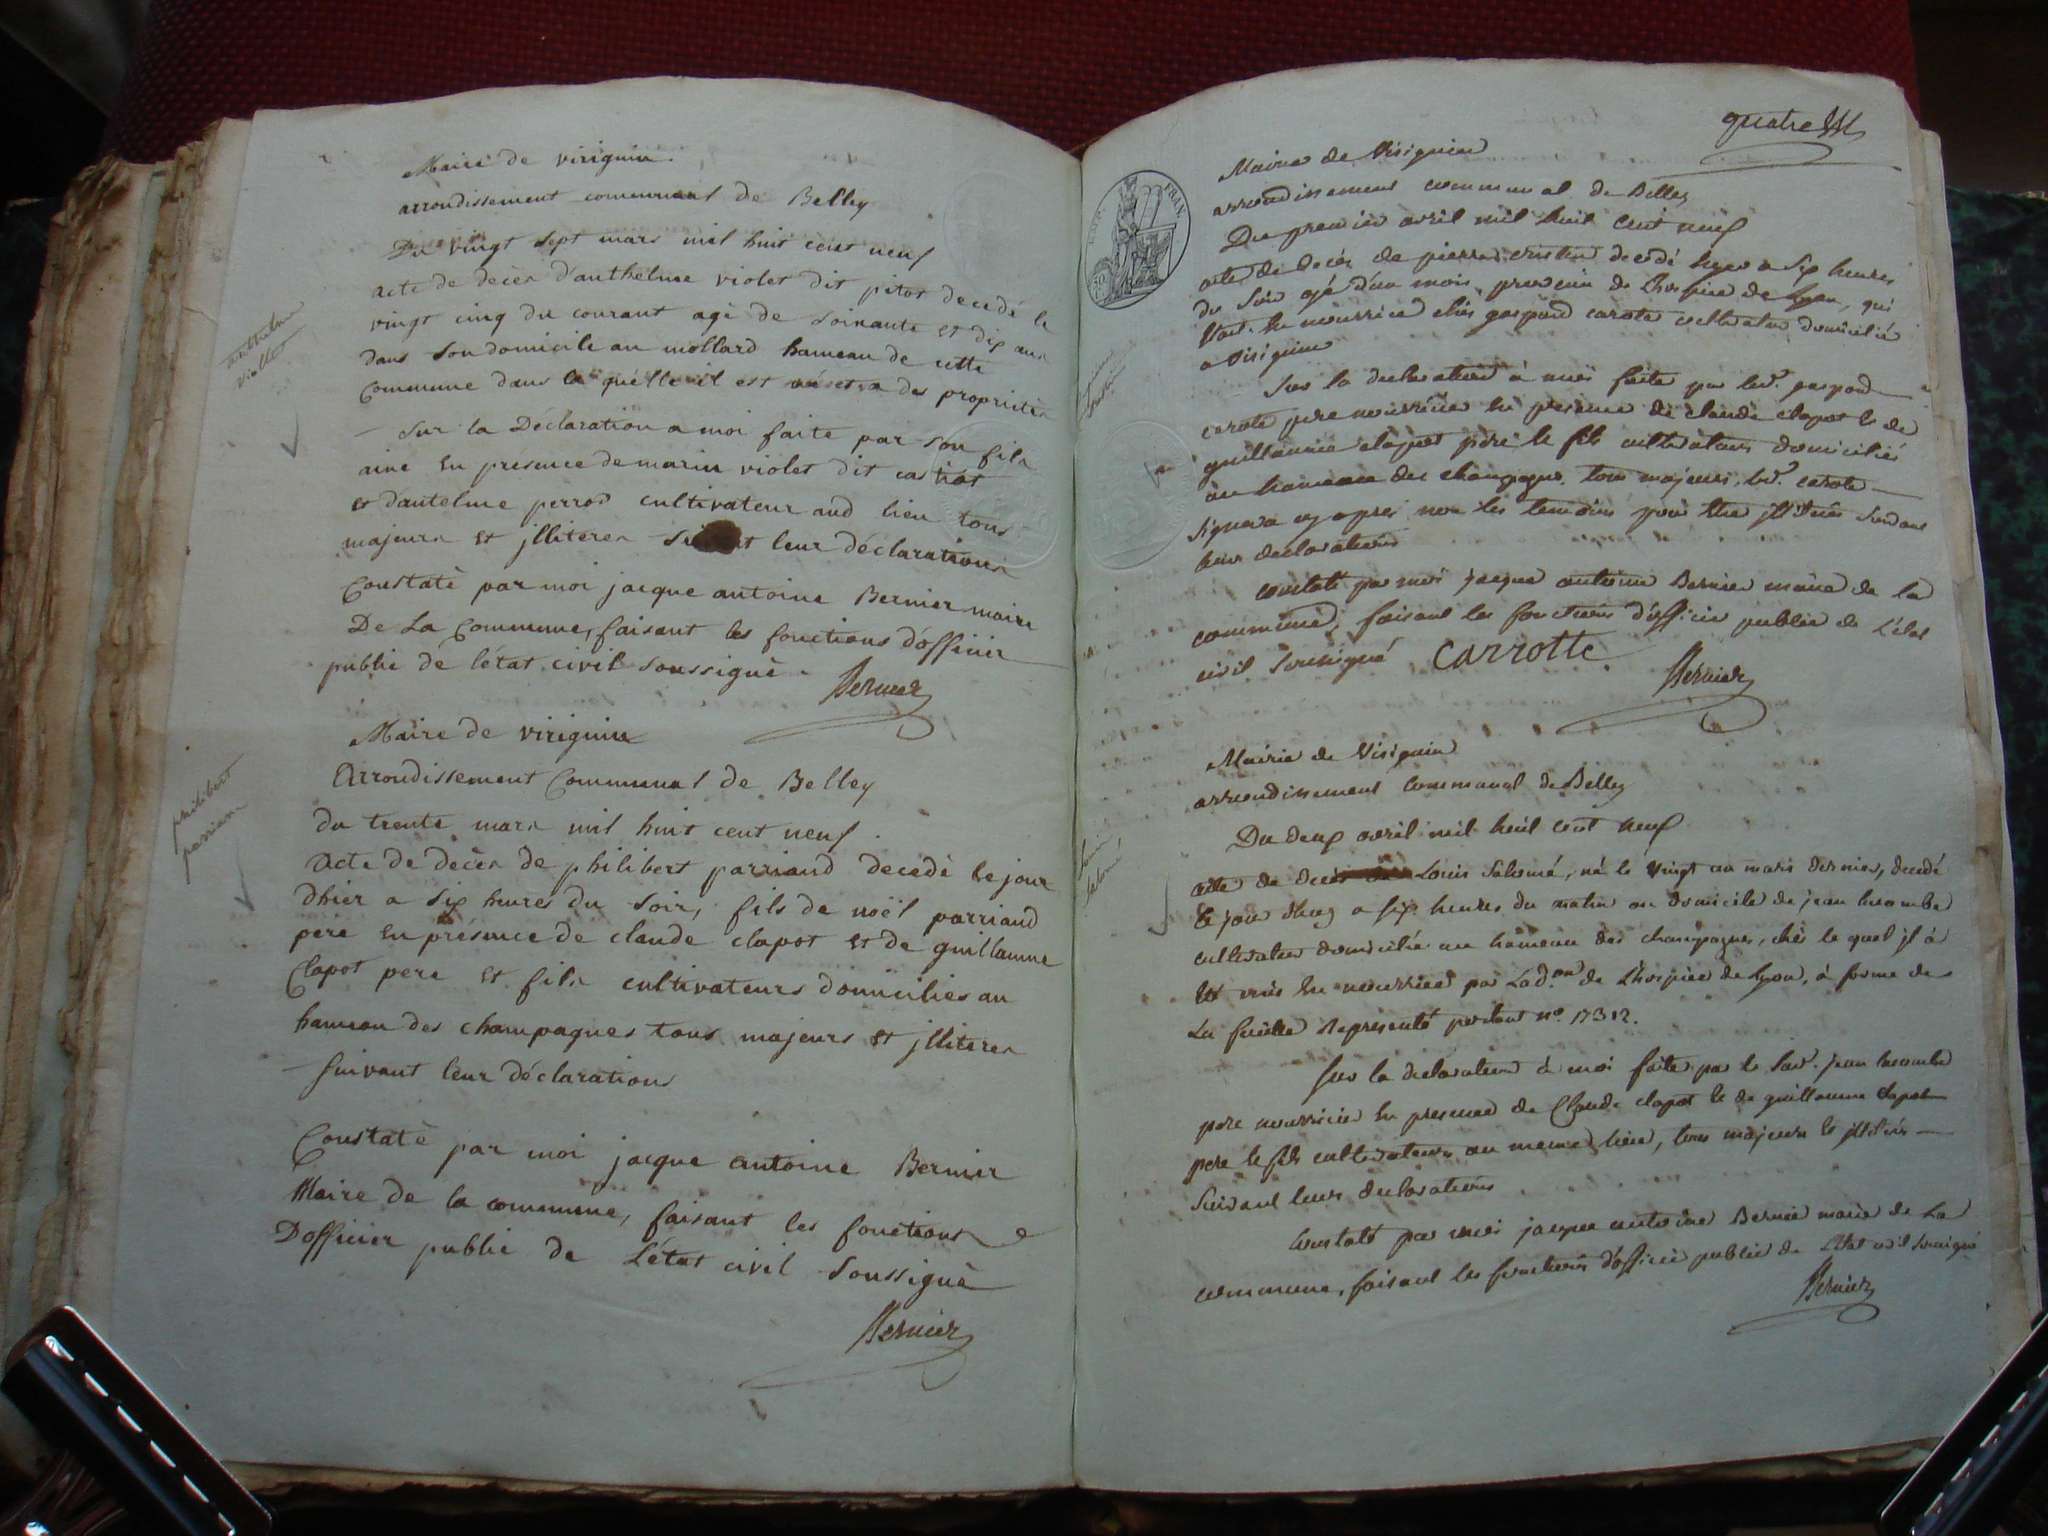 Maire de virignin.
arrondissement communal de Belley
Du vingt sept mars mil huit cent neuf
acte de décès d'anthelme violet dit pitot decedé le
vingt cinq du courant agé de soixante et dix ans
dans son domicile au mollard hameau de cette
Commune dans la quelle il est des proprietés
anthelme
violet
- Sur la Déclaration a moi faite par son fils
ainé en présence de marin violet dit castiot
et dantelme perrod cultivateur aud lieu tous
majeurs et jlliterés leur déclarations
Constaté par moi jacque antoine Bernier maire
De La Commune, faisant les fonctions d'officier
public de l'état civil soussigné.
Bernier
Maire de virignin
Arrondissement Communal de Belley
du trente mars mil huit cent neuf.
philibert
parrian
acte de décès de philibert parriand decedé le jour
dhier a six heures du soir, fils de noël parriand
pere en présence de claude clapot et de guillaume
Clapot pere et fils cultivateurs domiciliés au
hameau des champagnes tous majeurs et jlliterés
- suivant leur déclarations
Constaté par moi jacque antoine Bernier
Maire de la commune, faisant les fonctions
D'officier public de L'état civil soussigné
Bernier
quatre
FRAN.
Mairie de Virignin
arrondissement communal de Belley
Du premier avril mil huit cent neuf
acte de décès de pierre decedé hyer a six heures
du soir agé d'un mois, provenu de l'hospice de Lyon, qui
etait en nourrice chés gaspard carote cultivateur domicilié
a virignin
Sur la declaration à moi faite par led. gaspard
carote pere nourricier en presence de claude clapot et de
guillaume clapot père et fils cultivateurs domiciliés
au hameau des champagne tous majeurs, led. carote
signera cy apres non les temoins pour être jlliterés suivant
leur declarations
constaté par moi jacque antoine Bernier maire de la
commune, faisant les fonctions d'officier public de l'état
civil soussigné Carrotte.
Bernier
Mairie de Virignin
arrondissement communal de Belley
Du deux avril mil huit cent neuf
Louis
Salomé
acte de decès de Louis Salomé, né le vingt un mars dernier, decedé
le jour d'huy a six heures du matin au domicile de jean lacombe
cultivateur domicilié au hameau des champagnes, chés le quel jl à
été mis en nourrice par Lad.on de L'hospice de Lyon, à forme de
La feuille Représenté portant n°. 17312.
Sur la declaration à moi faite par le jean lacombe
pere nourricier en presence de Claude clapot et de guillaume clapot
pere et fils cultivateurs au meme lieu, tous majeurs et jlliterés
suivant leurs declarations
Constaté par moi jacque antoine Bernier maire de La
commune, faisant les fonctions d'officier public de L'état civil soussigné
Bernier